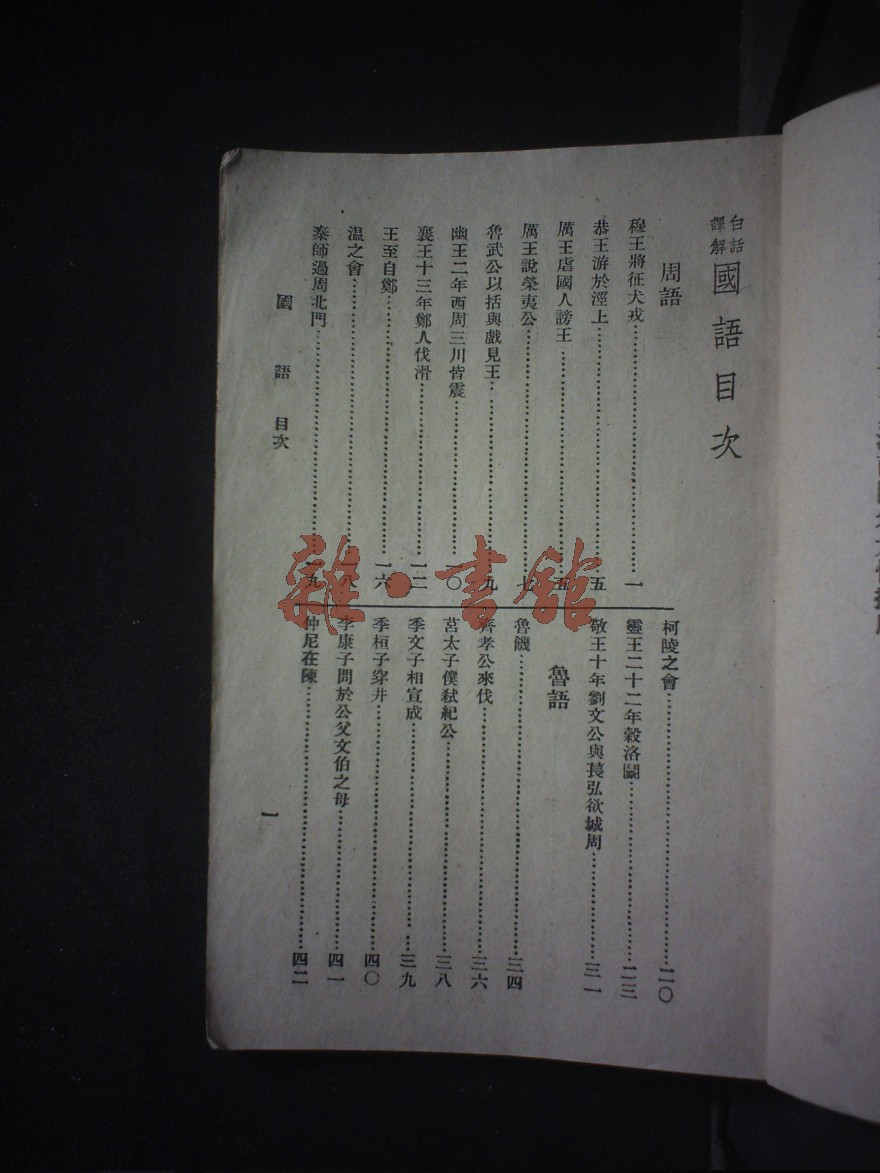 白話譯解 國語目次
周語
穆王將征犬戎……一
恭王游於涇上……五
厲王虐國人謗王……五
厲王說榮夷公……七
魯武公以括與戲見王……九
幽王二年西周三川皆震……一〇
襄王十三年鄭人伐滑……一二
王至自鄭……一六
溫之會……一八
秦師過周北門……一九
柯陵之會……二〇
靈王二十二年穀洛鬭……二三
敬王十年劉文公與萇弘欲城周……三一
魯語
魯饑……三四
齊孝公來伐……三六
莒太子僕弒紀公……三八
季文子相宣成……三九
季桓子穿井……四〇
季康子問於公父文伯之母……四一
仲尼在陳……四二
國語 目次
一
雜·書館